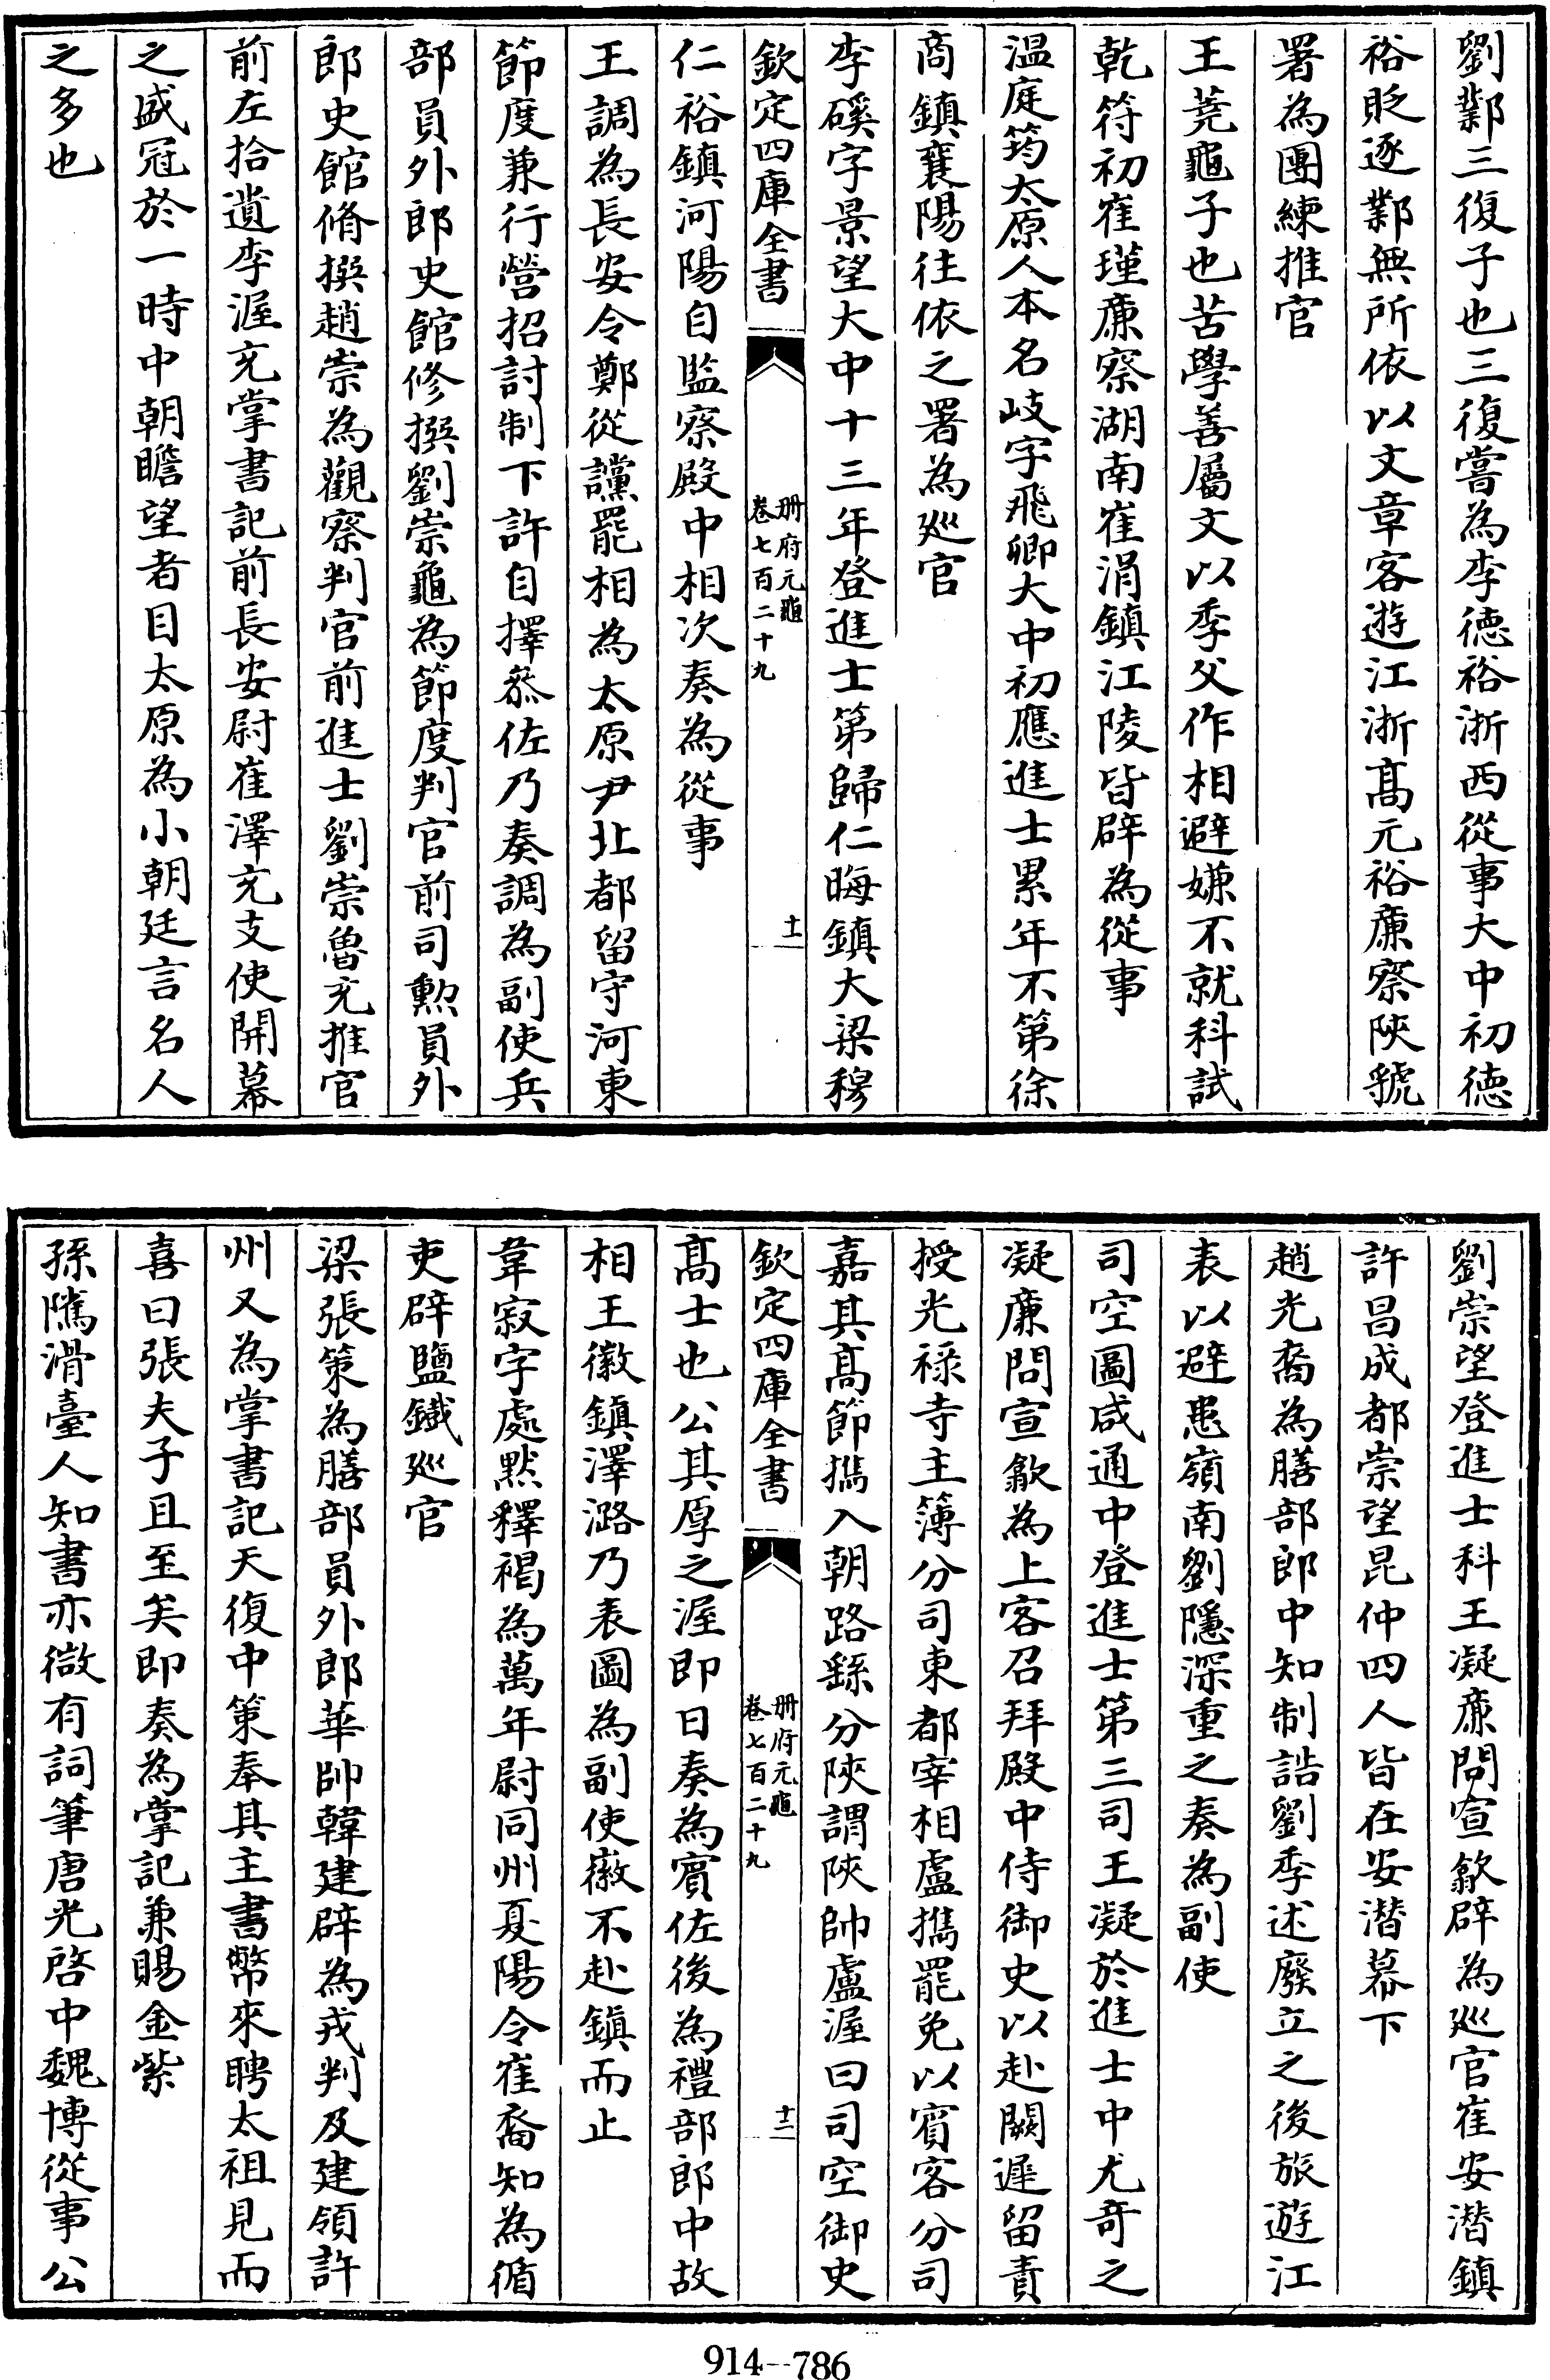 劉鄴三復子也三復嘗為李徳裕浙西從事大中初徳
裕貶逐鄴無所依以文章客遊江浙髙元裕廉察陜虢
署為團練推官
王蕘龜子也苦學善屬文以季父作相避嫌不就科試
乾符初崔瑾廉察湖南崔涓鎮江陵皆辟為從事
温庭筠太原人本名岐字飛卿大中初應進士累年不第徐
商鎮襄陽往依之署為廵官
李磎字景望大中十三年登進士第歸仁晦鎮大梁穆
欽定四庫全書
册府元龜
卷七百二十九
十一
仁裕鎮河陽自監察殿中相次奏為從事
王調為長安令鄭從讜罷相為太原尹北都留守河東
節度兼行營招討制下許自擇叅佐乃奏調為副使兵
部員外郎史館修撰劉崇龜為節度判官前司勲員外
郎史館脩撰趙崇為觀察判官前進士劉崇魯充推官
前左拾遺李渥充掌書記前長安尉崔澤充支使開幕
之盛冠於一時中朝瞻望者目太原為小朝廷言名人
之多也
劉崇望登進士科王凝廉問宣歙辟為廵官崔安潛鎮
許昌成都崇望昆仲四人皆在安潛幕下
趙光裔為膳部郎中知制誥劉季述廢立之後旅遊江
表以避患嶺南劉隱深重之奏為副使
司空圖咸通中登進士第三司王凝於進士中尤竒之
凝廉問宣歙為上客召拜殿中侍御史以赴闕遲留責
授光禄寺主簿分司東都宰相盧攜罷免以賓客分司
嘉其髙節攜入朝路繇分陜謂陜帥盧渥曰司空御史
欽定四庫全書
册府元龜
卷七百二十九
十二
髙士也公其厚之渥即日奏為賓佐後為禮部郎中故
相王徽鎮澤潞乃表圖為副使徽不赴鎮而止
韋寂字處黙釋褐為萬年尉同州夏陽令崔裔知為循
吏辟鹽鐵廵官
梁張策為膳部員外郎華帥韓建辟為戎判及建領許
州又為掌書記天復中策奉其主書幣來聘太祖見而
喜曰張夫子且至矣即奏為掌記兼賜金紫
孫隲滑臺人知書亦㣲有詞筆唐光啓中魏博從事公
914--786